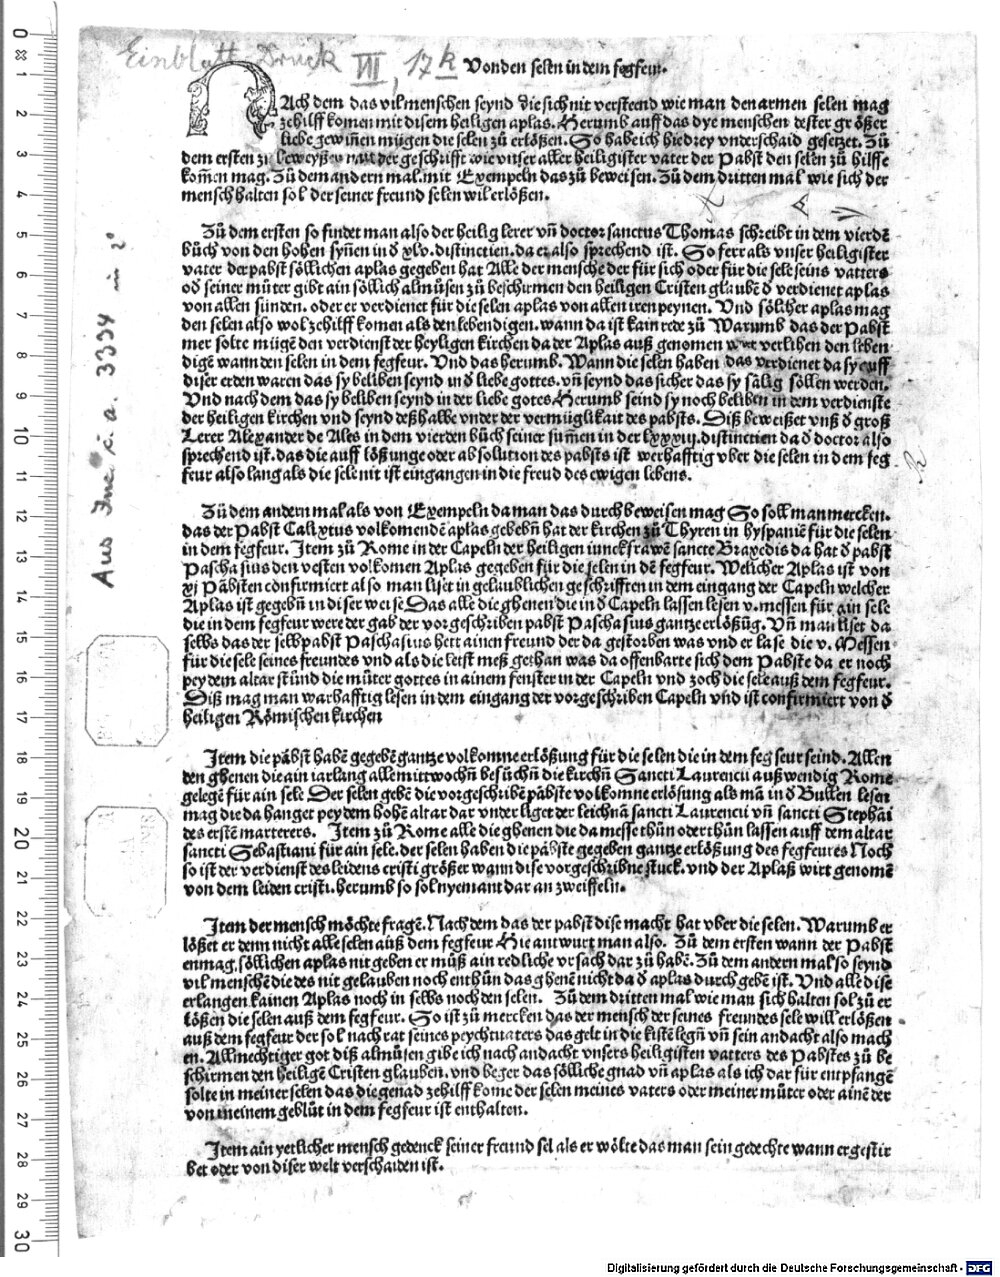 Einblatt-Druck VII, 17 k
Von den selen in dem fegfeur.
NAch dem das vil menschen seynd die sich nit versteend wie man den armen selen mag
zehilff komen mit disem heiligen aplas. Herumb auff das dye menschen dester grösser
liebe gewiñen mügen die selen zů erlößen. So habe ich hie drey vnderschaid gesetzet. Zů
dem ersten zů beweyßen nach der geschrifft wie vnser aller heiligister vater der Pabst den selen zů hilffe
kom̄en mag. Zů dem andern mal. mit Exempeln das zů beweisen. Zů dem dritten mal wie sich der
mensch halten sol der seiner freund selen wil erlößen.
Zů dem ersten so findet man also der heilig lerer vñ doctor sanctus Thomas schreibt in dem vierdē
bůch von den hohen syñen in ď xlv. distinctien. da er also sprechend ist. So ferr als vnser heiligister
vater der pabst söllichen aplas gegeben hat Alle der mensche der für sich oder für die sele seins vatters
oď seiner můter gibt ain söllich almůsen zů beschirmen den heiligen Cristen glaubē ď verdienet aplas
von allen sünden. oder er verdienet für die selen aplas von allen iren peynen. Vnd sölicher aplas mag
den selen also wol zehilff komen als den lebendigen. wann da ist kain rede zů Warumb das der Pabst
mer solte mügē den verdienst der heyligen kirchen da der Aplas auß genomen wirt verlihen den leben
digē wann den selen in dem fegfeur. Vnd das herumb. Wann die selen haben das verdienet da sy auff
diser erden waren das sy beliben seynd in ď liebe gottes. vñ seynd das sicher das sy sälig söllen werden.
Vnd nach dem das sy beliben seynd in der liebe gotes Herumb seind sy noch beliben in dem verdienste
der heiligen kirchen vnd seynd deßhalbe vnder der vermüglikait des pabsts. Diß beweißet vnß ď groß
Lerer Alexander de Ales in dem vierden bůch seiner sum̄en in der lxxxiij. distinctien da ď doctor also
sprechend ist. das die auff lößunge oder absolution des pabsts ist werhafftig vber die selen in dem feg
feur also lang als die sele nit ist eingangen in die freud des ewigen lebens.
Zů dem andern mal als von Exempeln da man das durch beweisen mag So soll man mercken.
das der Pabst Calixtus volkomendē aplas gebebñ hat der kirchen zů Thyren in hyspaniē für die selen
in dem fegfeur. Item zů Rome in der Capeln der heiligen iunckfrawē sancte Braxedis da hat ď pabst
Paschasius den vesten volkomen Aplas gegeben für die selen in dē fegfeur. Welicher Aplas ist von
xj Päbsten confirmiert also man liset in gelaublichen geschrifften in dem eingang der Capeln welcher
Aplas ist gegebñ in diser weise Das alle die ghenen die in ď Capeln lassen lesen v. messen für ain sele
die in dem fegfeur were der gab der vorgeschriben pabst Paschasius gantze erlößūg. Vñ man liset da
selbs das der selb pabst Paschasius hett ainen freund der da gestorben was vnd er lase die v. Messen
für die sele seines freundes vnd als die letst meß gethan was da offenbarte sich dem Pabste da er noch
pey dem altar stůnd die můter gottes in ainem fenster in der Capeln vnd zoch die sele auß dem fegfeur.
Diß mag man warhafftig lesen in dem eingang der vorgeschriben Capeln vnd ist confirmiert von ď
heiligen Römischen kirchen
Item die päbst habē gegebē gantze volkomne erlößung für die selen die in dem fegfeur seind. Allen
den ghenen die ain iarlang alle mitwochñ besůchñ die kirchñ Sancti Laurencii außwendig Rome
gelegē für ain sele Der selen gebē die vorgeschribē päbste volkomne erlösung als mā in ď Bullen lesen
mag die da hanget pey dem hohē altar dar vnder liget der leichnā sancti Laurencii vñ sancti Stephāi
des erstē marterers. Item zů Rome alle die ghenen die da messe thůn oder thůn lassen auff dem altar
sancti Sebastiani für ain sele. der selen haben die päbste gegeben gantze erlößung des fegfeures Noch
so ist der verdienst des leidens cristi größer wann dise vorgeschribne stuck. vnd der Aplaß wirt genomē
von dem leiden cristi. herumb so sol nyemant dar an zweiffeln.
Item der mensch möchte fragē. Nach dem das der pabst dise macht hat vber die selen. Warumb er
lößet er denn nicht alle selen auß dem fegfeur Hie antwurt man also. Zů dem ersten wann der Pabst
enmag. söllichen aplas nit geben er můß ain redliche vrsach dar zů habē. Zů dem andern mal so seynd
vil menschē die des nit gelauben noch enthůn das ghenē nicht da ď aplas durch gebē ist. Vnd alle dise
erlangen kainen Aplas noch in selbs noch den selen. Zů dem dritten mal wie man sich halten sol zů er
lößen die selen auß dem fegfeur. So ist zů mercken das der mensch der seines freundes sele will erlößen
auß dem fegfeur der sol nach rat seines peychtuaters das gelt in die kistē legñ vñ sein andacht also mach
en. Allmechtiger got diß almůsen gibe ich nach andacht vnsers heiligisten vatters des Pabstes zů be
schirmen den heiligē Cristen glauben. vnd beger das sölliche gnad vñ aplas als ich dar für entpfangē
solte in meiner selen das die genad zehilff kome der selen meines vaters oder meiner můter oder ainē der
von meinem geblůt in dem fegfeur ist enthalten.
Item ain yetlicher mensch gedenck seiner freund sel als er wölte das man sein gedechte wann er gestir
bet oder von diser welt verschaiden ist.
Aus Inc. c. a. 3334 in 2°
0 1 2 3 4 5 6 7 8 9 10 11 12 13 14 15 16 17 18 19 20 21 22 23 24 25 26 27 28 29 30
Digitalisierung gefördert durch die Deutsche Forschungsgemeinschaft - DFG